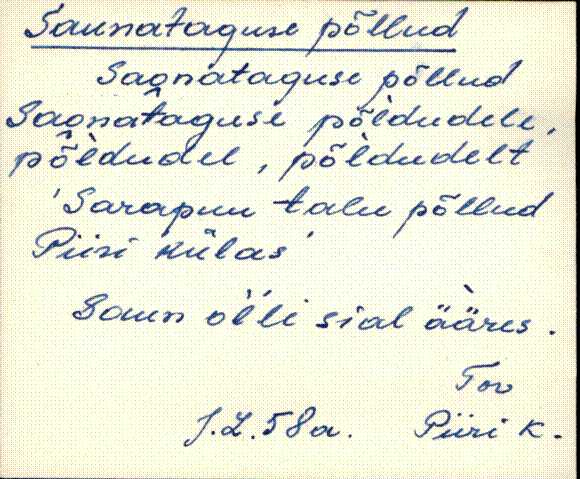 Saunataguse põllud
Saunataguse põllud
Saunataguse põldudele,
põldudel, põldudelt
'Sarapuu talu põllud
Piiri külas'
Saun ol̀li sial ääres.
Tor
J.L. 58a. Piiri k.